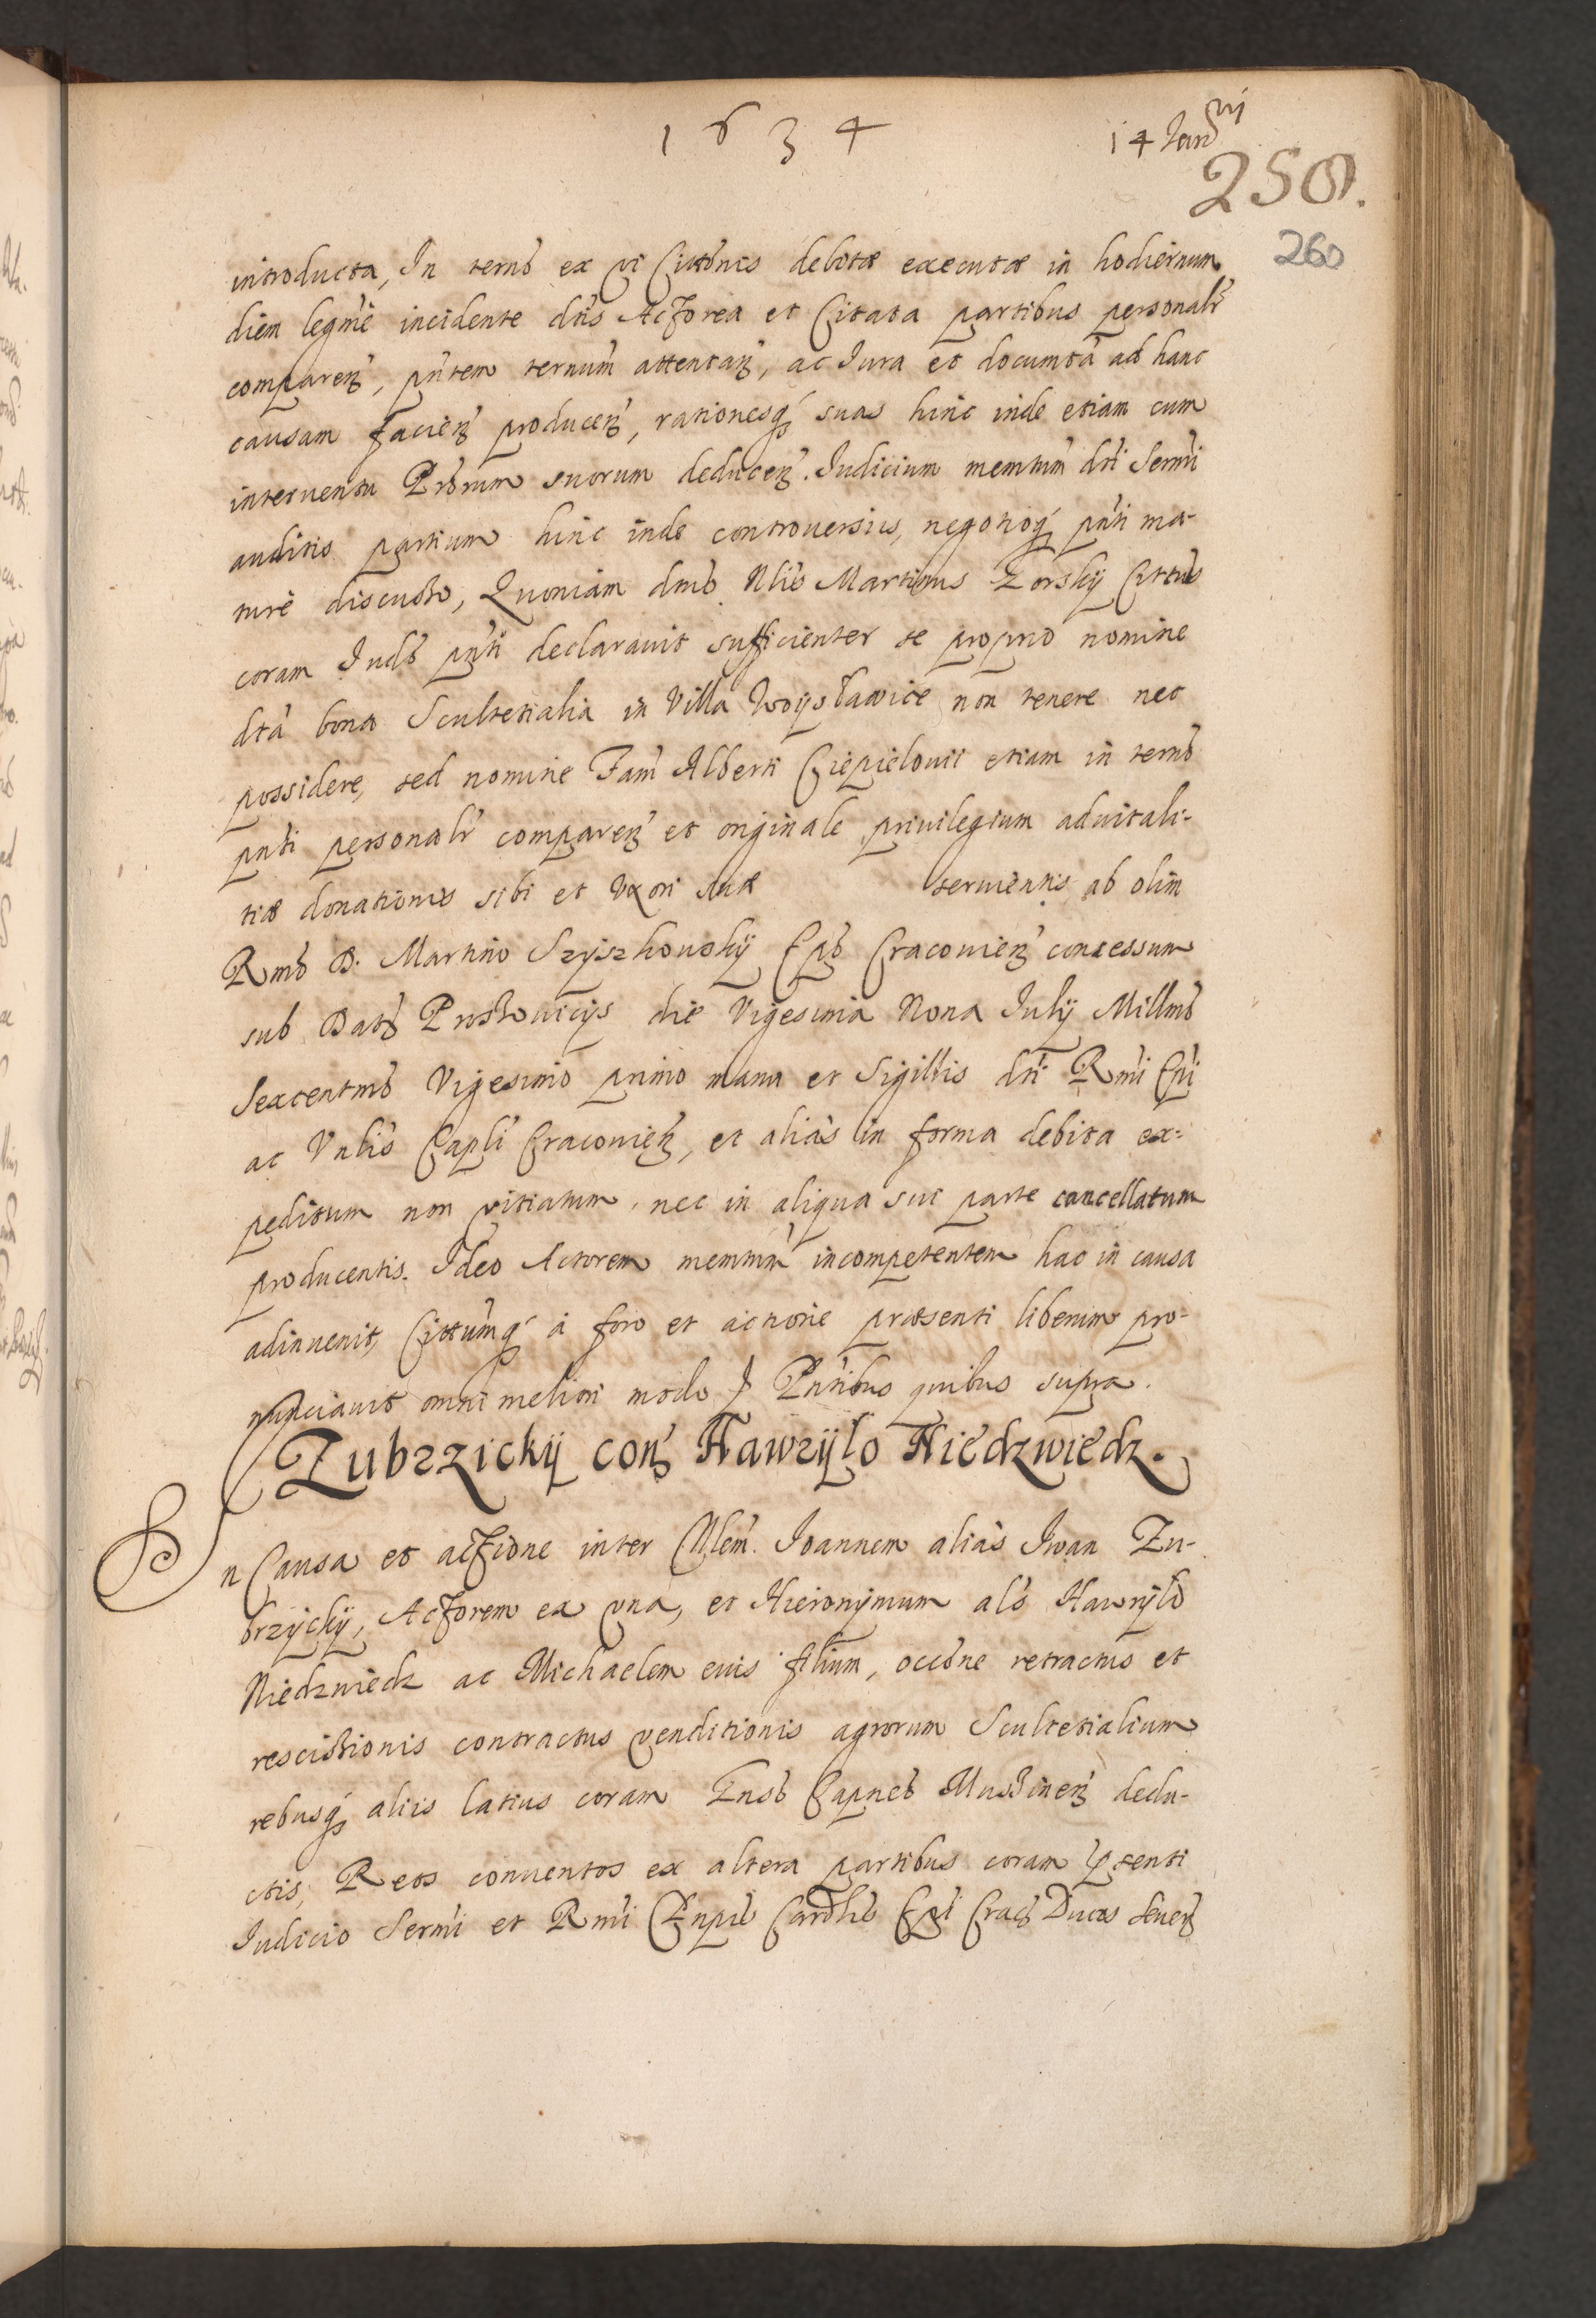 1634 14 Jan
250.
260
introducta, In termō ex vi Cittōnis debitæ executæ in hodiernum
diem legmē incidente dtis Actorea et Citata partibus personalr
comparen, pntem termum attentan, ac Iura et documta ad hanc
causam facien producen, rationesq suas hinc inde etiam cum
interventu Prōrum suorum deducen. Iudicium memtum dti Sermi
auditis partium hinc inde controversiis, negotioq pnti ma-
ture discusso, Quoniam dnus Nlis Martinus Zorskij Cittus
coram Iudō pnti declaravit sufficienter se proprio nomine
dta bona Scultetialia in Villa Woysławice non tenere nec
possidere, sed nomine Fam Alberti Ciepielovii etiam in termō
pnti personalr comparen et originale privilegium advitali-
tiæ donationis sibi et Uxori suæ servientis, ab olim
Rmō D. Martino Szyszkowskij Epō Cracovien concessum
sub Dat Proszovicijs die Vigesima Nona Iulij Millmō
Sexcentmō Vigesimo primo manu et Sigillis dti Rmi Epi
ac Vnlis Capli Cracovien, et alias in forma debita ex-
peditum non vitiatum, nec in aliqua sui parte cancellatum
producentis. Ideo Actorem memtum incompetentem hac in causa
adinvenit, Cittumq a foro et actione præsenti liberum pro-
nunciavit omni meliori modo Pntibus quibus supra.
Zubrzzickij con Hawryło Niedzwiedz.
In Causa et actione inter Nlem Joannem alias Iwan Zu-
brzyckij, Actorem ex una, et Hieronymum als Hawryło
Niedzwiedz ac Michaelem eius filium, occōne retractus et
rescissionis contractus venditionis agrorum Scultetialium
rebusq aliis latius coram Gnsō Capneō Mussinen dedu-
ctis, Reos conventos ex altera partibus coram pſenti
Iudicio Sermi et Rmi Pnpis Cardlis Epi Crac Ducis Severien